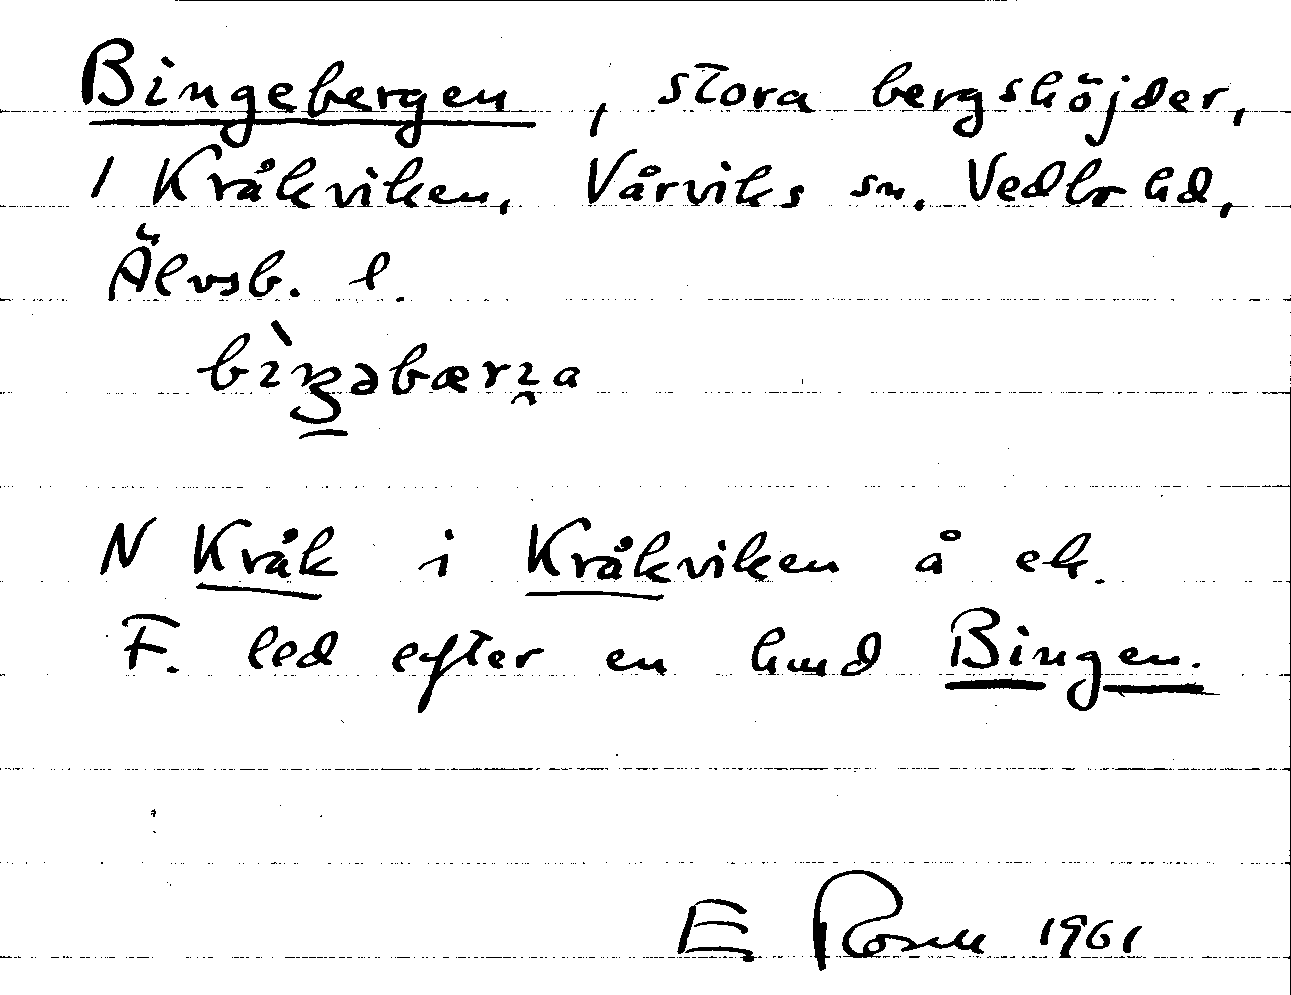 Bingebergen, stora bergshöjder,
I Kråkviken, Vårviks sn. Vedbo hd,
Älvsb. l.
bìŋəbærɪ̯a
N Kråk i Kråkviken å ek.
F. led efter en hund Bingen.
E Rosell 1961